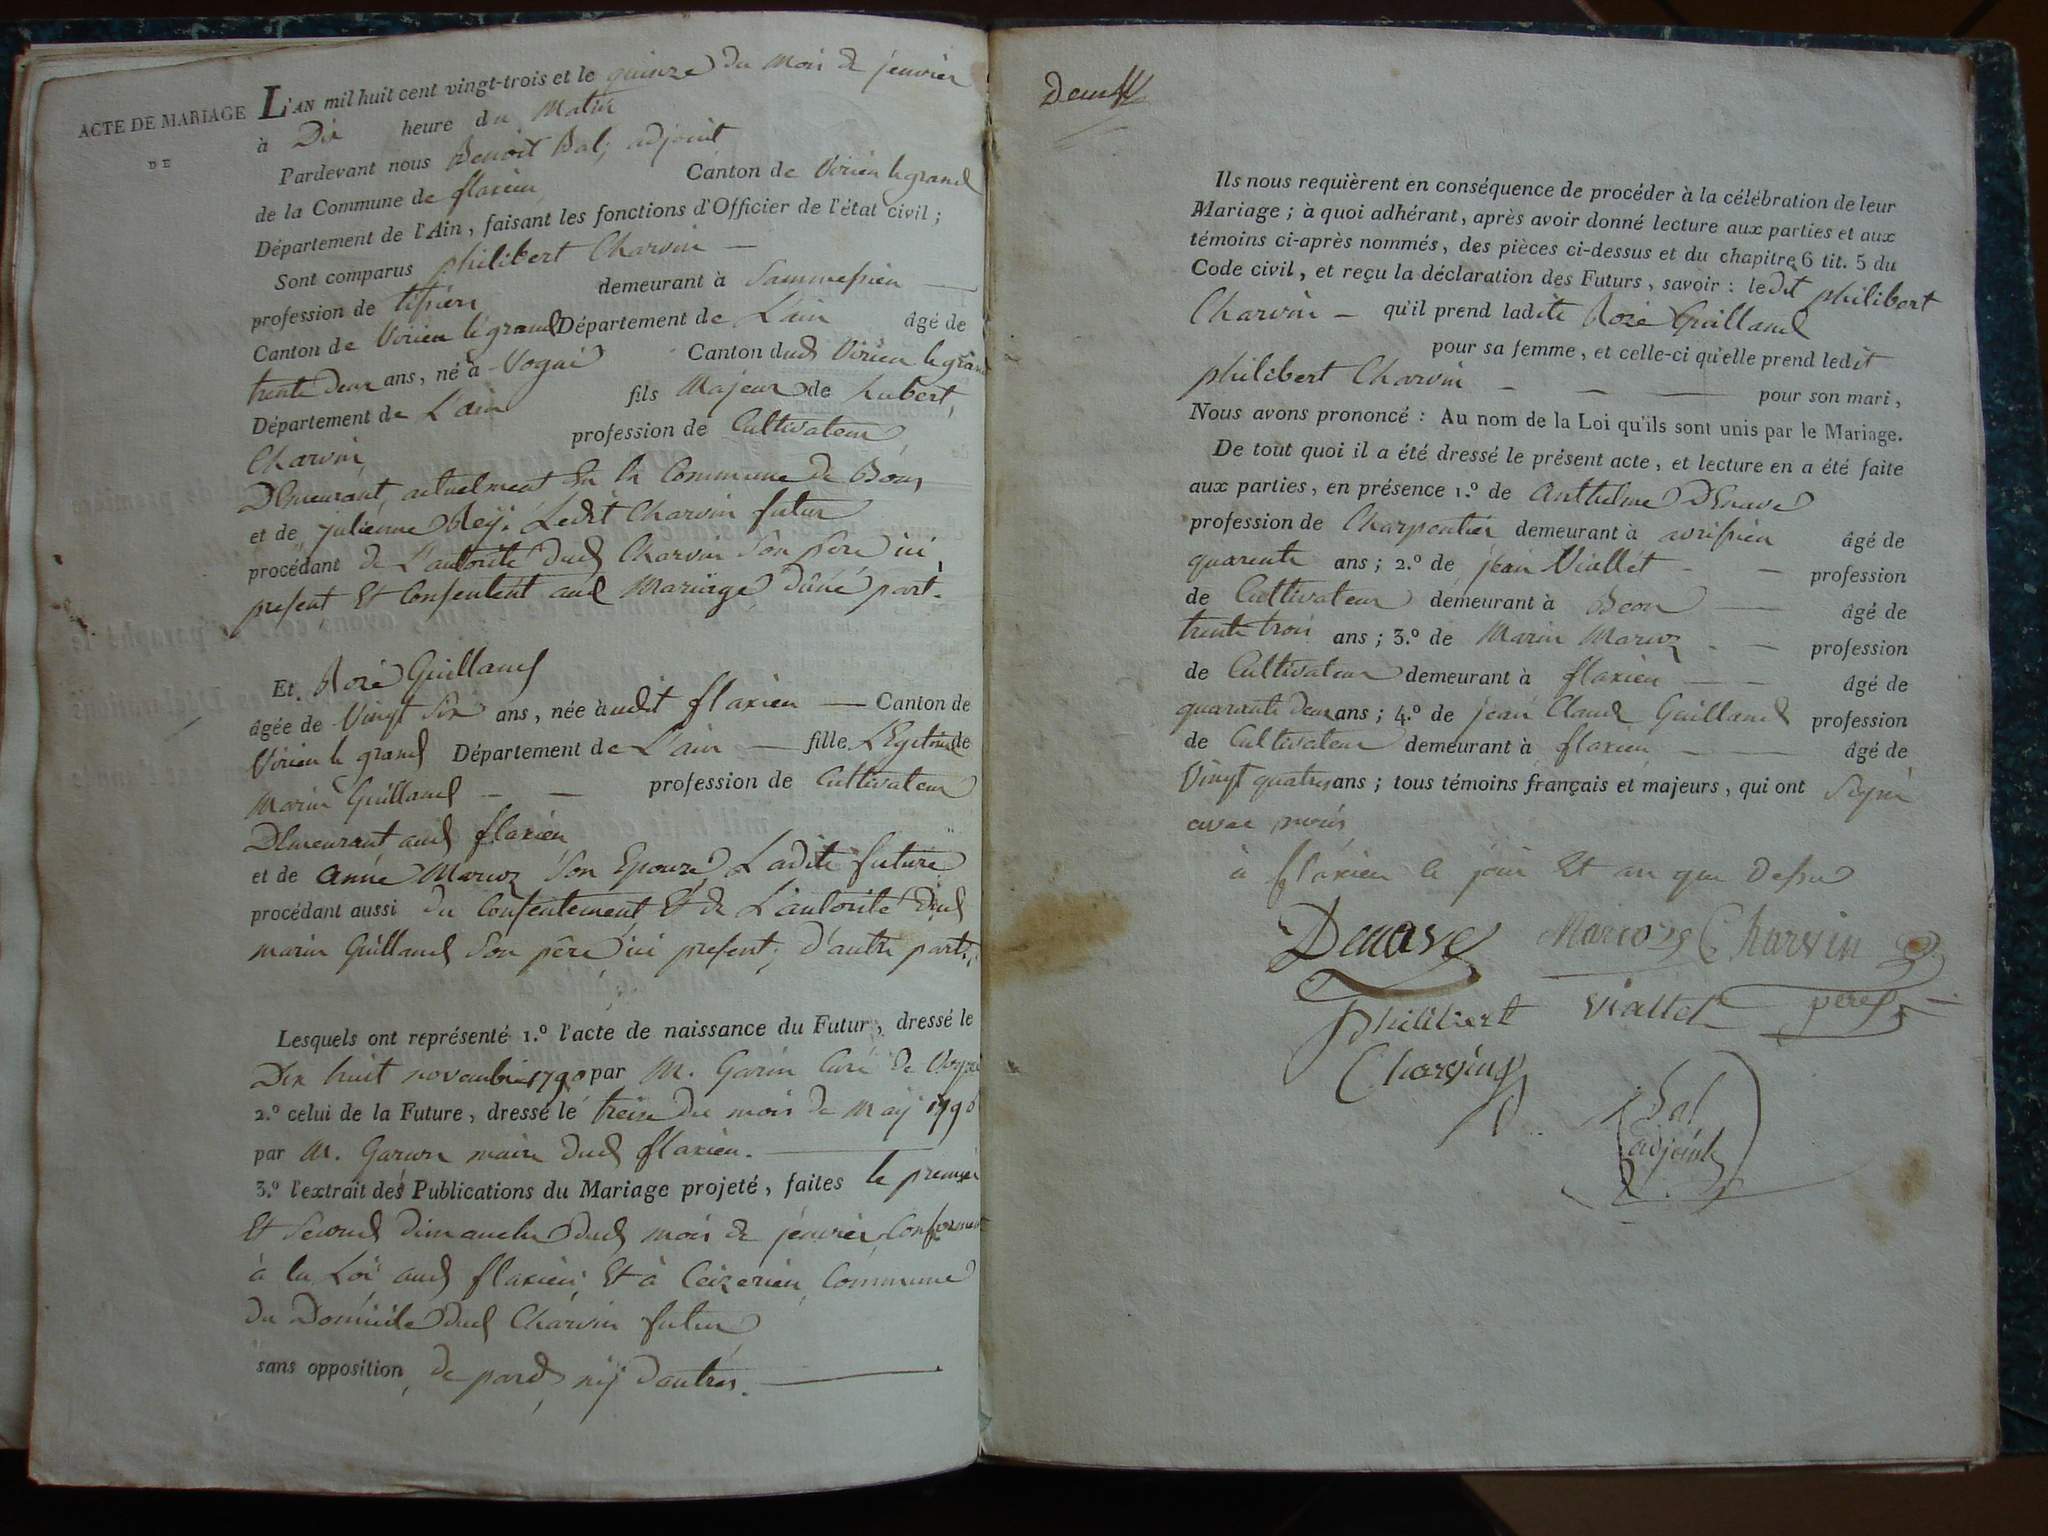 ACTE DE MARIAGE
DE
L'AN mil huit cent vingt-trois et le quinze du Mois de jeanvier
à Dix heure du Matin
Pardevant nous Benoit Bal, adjoint
de la Commune de flaxieu Canton de Virieu le grand
Département de l'Ain, faisant les fonctions d'Officier de l'état civil ;
Sont comparus philibert Charvin
profession de tissier demeurant à
Canton de Virieu le grand Département de L'ain âgé de
trente deux ans, né à Vogai Canton dud Virieu le grand
Département de L'ain fils Majeur de hubert,
Charvin profession de Cultivateur
Demeurant actuelment En la Commune de Béon
et de julienne Reÿ. Ledit Charvin futur
procédant de L'autorité dud Charvin Son père ici
present Et Consentent aud Mariage d'une part.
Et Roze Guilland
âgée de Vingt Six ans, née audit flaxieu Canton de
Virieu le grand Département de L'ain fille Legitime de
Marin Guilland profession de Cultivateur
Demeurant aud flaxieu
et de Anne Marcoz Son Epouze, Ladite future
procédant aussi du Consentement Et de L'autorité dud
marin Guilland Son père ici present, d'autre part.
Lesquels ont représenté 1.º l'acte de naissance du Futur, dressé le
Dix huit novembre 1790 par M. Garin Curé de
2.º celui de la Future, dressé le treize du mois de Maÿ 1796
par M. maire dud flaxieu.
3.º l'extrait des Publications du Mariage projeté, faites le premier
Et Second dimanche dud mois de jeanvier Conforment
à la Loi aud flaxieu, Et à Ceizerieu Commune
du Domicile dud Charvin futur
sans opposition de pard nÿ d'autres.
Ils nous requièrent en conséquence de procéder à la célébration de leur
Mariage ; à quoi adhérant, après avoir donné lecture aux parties et aux
témoins ci-après nommés, des pièces ci-dessus et du chapitre 6 tit. 5 du
Code civil, et reçu la déclaration des Futurs, savoir : ledit philibert
Charvin qu'il prend ladite Roze Guilland
pour sa femme, et celle-ci qu'elle prend ledit
philibert Charvin pour son mari,
Nous avons prononcé : Au nom de la Loi qu'ils sont unis par le Mariage.
De tout quoi il a été dressé le présent acte, et lecture en a été faite
aux parties, en présence 1.º de Anthelme Denave
profession de Charpentier demeurant à avrissieu âgé de
quarente ans ; 2.º de jean Viallet profession
de Cultivateur demeurant à Beon âgé de
trente trois ans ; 3.º de Marin Marcoz profession
de Cultivateur demeurant à flaxieu âgé de
quarante deux ans ; 4.º de jean Claude Guilland profession
de Cultivateur demeurant à flaxieu âgé de
Vingt quatres ans ; tous témoins français et majeurs, qui ont Signé
avec nous
à flaxieu le jour Et an que dessu
Denave Marcoz Charvin
philibert viallet père
Charvin
Bal
adjoint